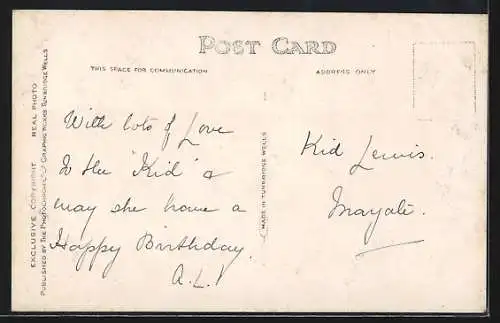 POST CARD
THIS SPACE FOR COMMUNICATION
ADDRESS ONLY
With lots of Love
To the "Kid" &
may she have a
Happy Birthday.
A.L.
Kid Lewis.
MADE IN TUNBRIDGE WELLS
EXCLUSIVE COPYRIGHT REAL PHOTO
PUBLISHED BY THE PHOTOCHROM CO. LTD GRAPHIC WORKS TUNBRIDGE WELLS